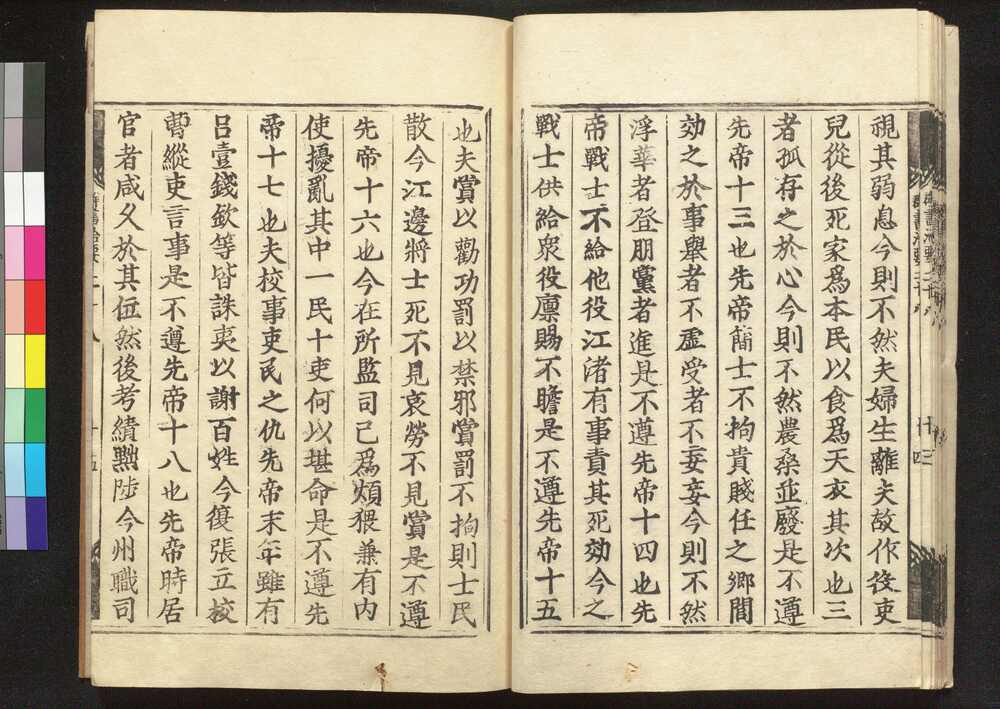 視其弱息今則不然夫婦生離夫故作役吏
兒從後死家爲本民以食爲天衣其次也三
者孤存之於心今則不然農桑並廢是不遵
先帝十三也先帝簡士不拘貴賤任之鄉閭
効之於事舉者不虛受者不妄妄今則不然
浮華者登朋黨者進是不遵先帝十四也先
帝戰士不給他役江渚有事責其死効今之
戰士供給衆役廪賜不贍是不遵先帝十五
也夫賞以勸功罰以禁邪賞罰不拘則士民
散今江邊將士死不見哀勞不見賞是不遵
先帝十六也今在所監司已爲煩猥兼有内
使擾亂其中一民十吏何以堪命是不遵先
帝十七也夫校事吏民之仇先帝末年雖有
吕壹錢欽等皆誅夷以謝百姓今復張立校
曺縱吏言事是不遵先帝十八也先帝時居
官者咸久於其位然後考績黜陟今州職司